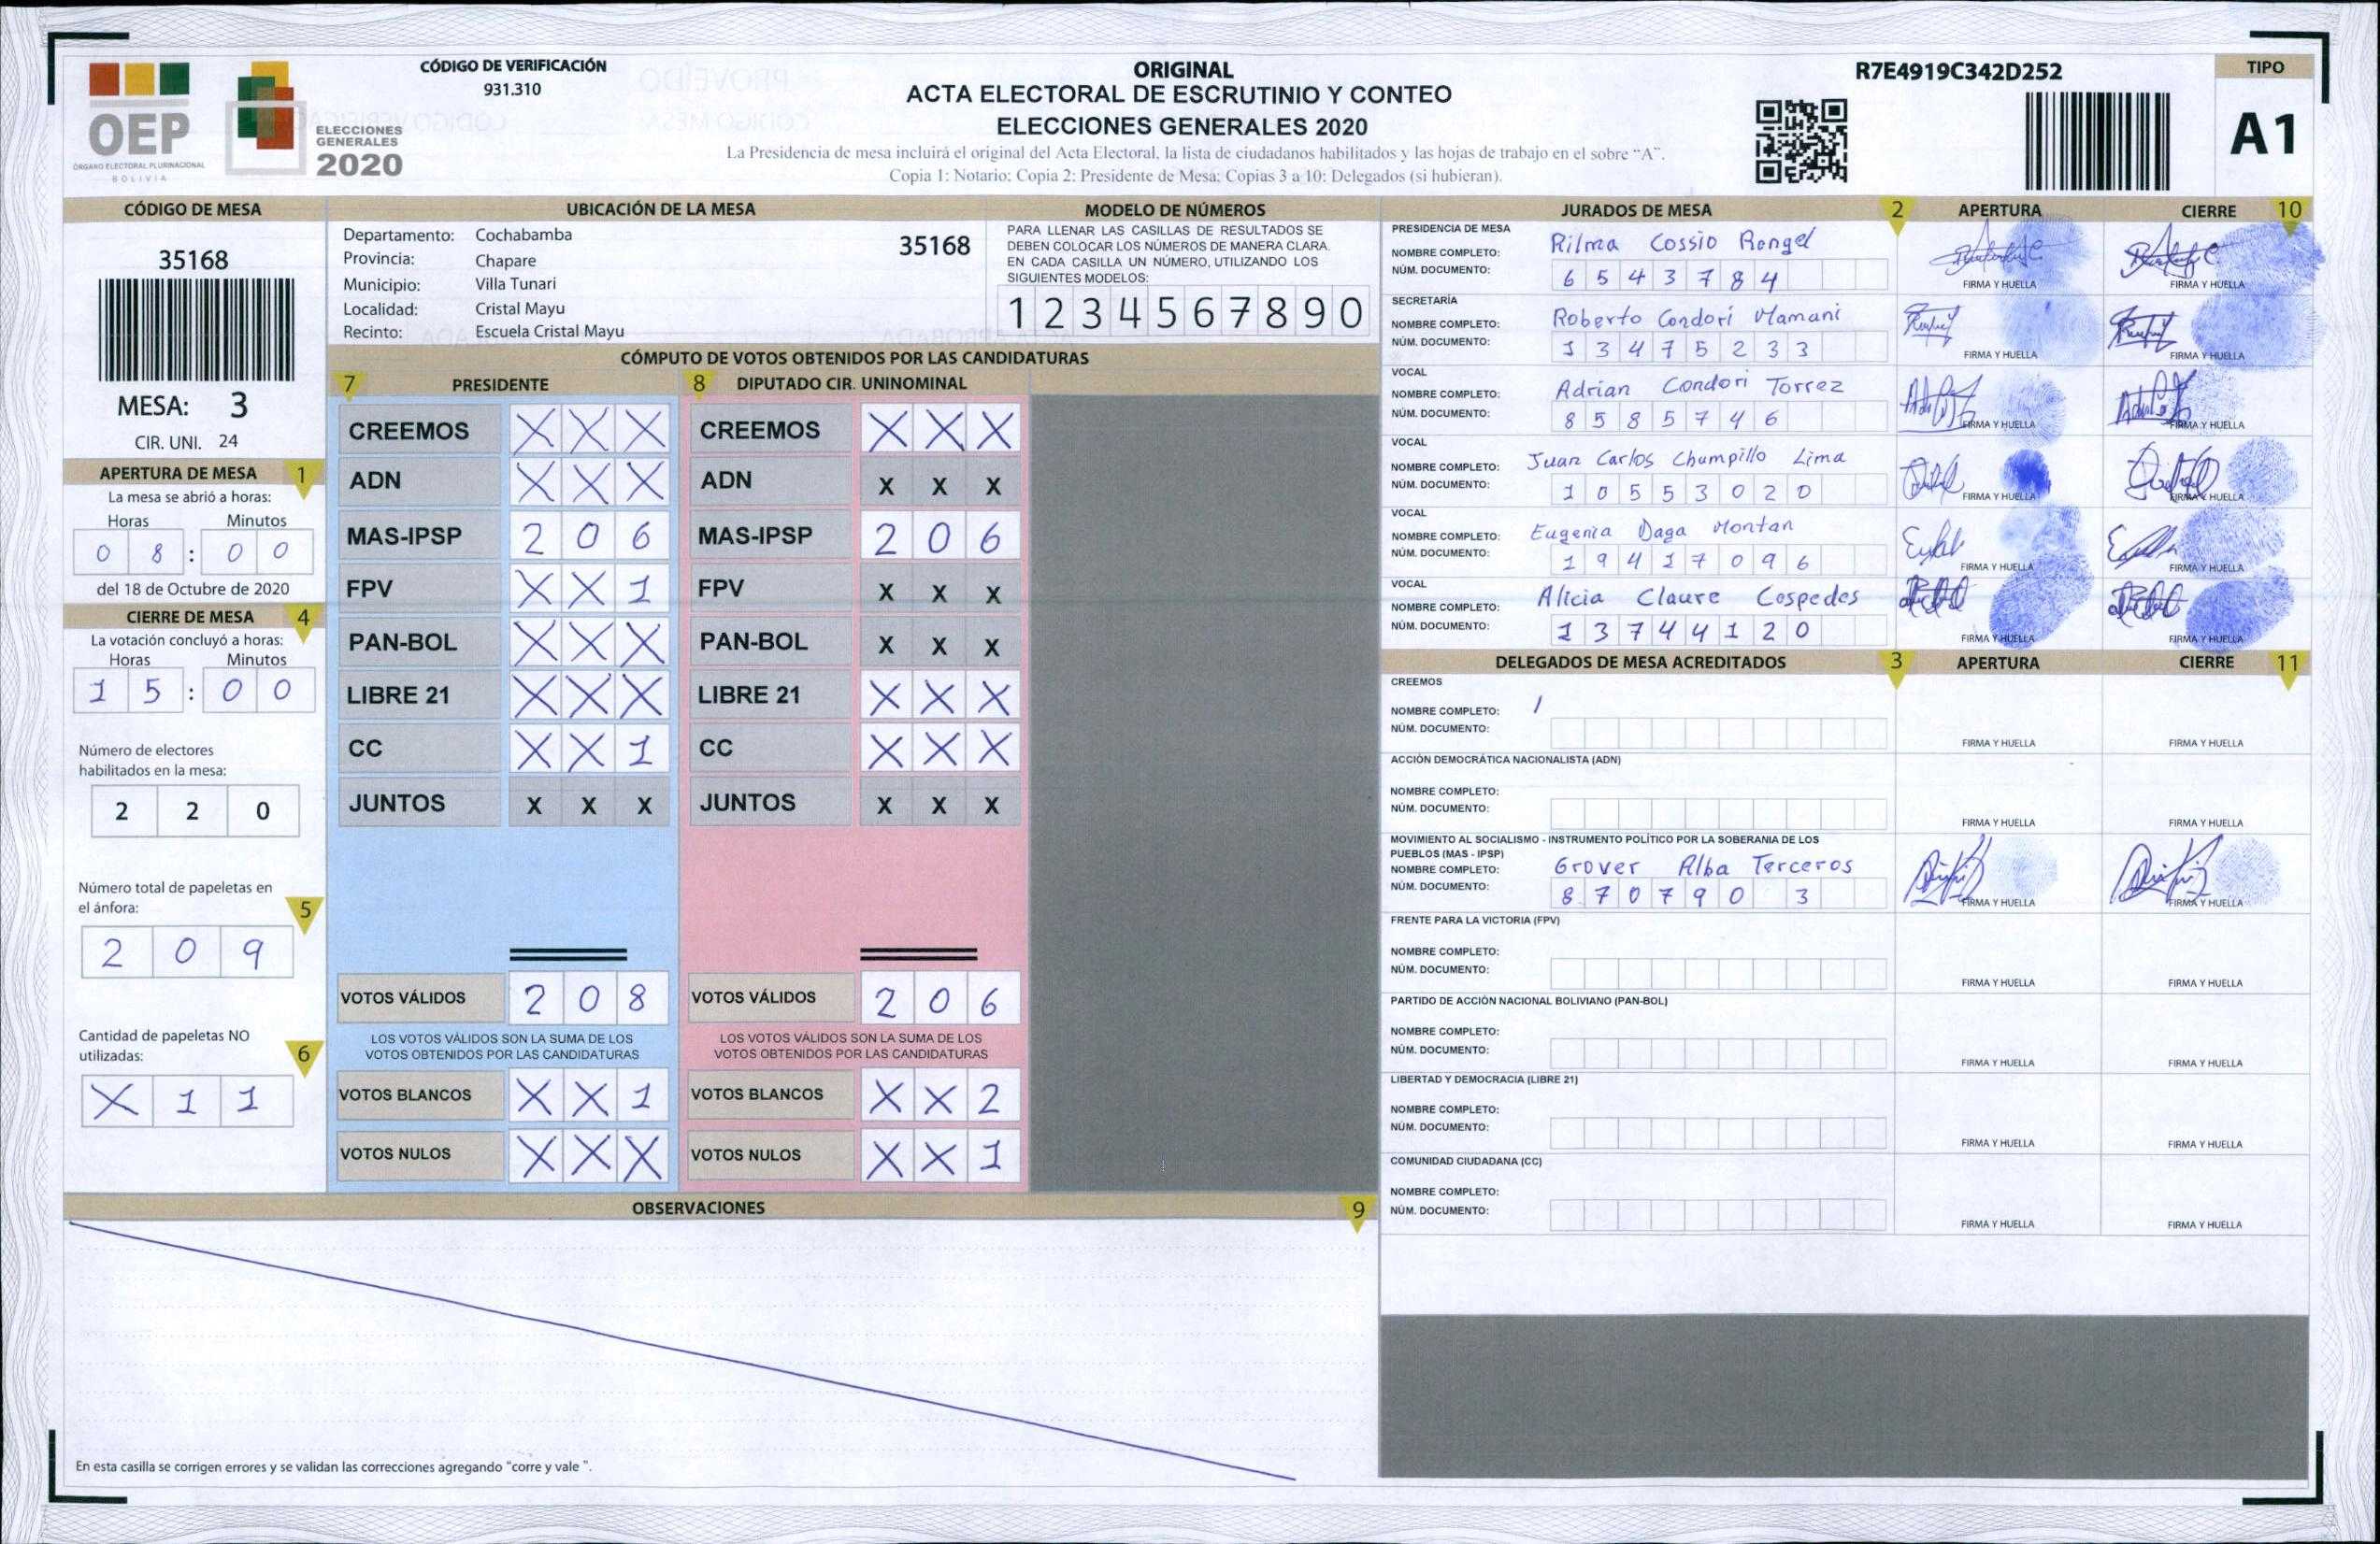 OEP
ÓRGANO ELECTORAL PLURINACIONAL
BOLIVIA
ELECCIONES
GENERALES
2020
CÓDIGO DE VERIFICACIÓN
931.310
ORIGINAL
ACTA ELECTORAL DE ESCRUTINIO Y CONTEO
ELECCIONES GENERALES 2020
La Presidencia de mesa incluirá el original del Acta Electoral, la lista de ciudadanos habilitados y las hojas de trabajo en el sobre “A”.
Copia 1: Notario; Copia 2: Presidente de Mesa; Copias 3 a 10: Delegados (si hubieran).
R7E4919C342D252
TIPO
A1
CÓDIGO DE MESA
35168
MESA: 3
CIR. UNI. 24
UBICACIÓN DE LA MESA
Departamento: Cochabamba
35168
Provincia: Chapare
Municipio: Villa Tunari
Localidad: Cristal Mayu
Recinto: Escuela Cristal Mayu
MODELO DE NÚMEROS
PARA LLENAR LAS CASILLAS DE RESULTADOS SE
DEBEN COLOCAR LOS NÚMEROS DE MANERA CLARA.
EN CADA CASILLA UN NÚMERO, UTILIZANDO LOS
SIGUIENTES MODELOS:
1 2 3 4 5 6 7 8 9 0
APERTURA DE MESA 1
La mesa se abrió a horas:
Horas Minutos
0 8 : 0 0
del 18 de Octubre de 2020
CIERRE DE MESA 4
La votación concluyó a horas:
Horas Minutos
1 5 : 0 0
Número de electores
habilitados en la mesa:
2 2 0
Número total de papeletas en
el ánfora: 5
2 0 9
Cantidad de papeletas NO
utilizadas: 6
X 1 1
CÓMPUTO DE VOTOS OBTENIDOS POR LAS CANDIDATURAS
7 PRESIDENTE
CREEMOS X X X
ADN X X X
MAS-IPSP 2 0 6
FPV X X 1
PAN-BOL X X X
LIBRE 21 X X X
CC X X 1
JUNTOS X X X
VOTOS VÁLIDOS 2 0 8
LOS VOTOS VÁLIDOS SON LA SUMA DE LOS
VOTOS OBTENIDOS POR LAS CANDIDATURAS
VOTOS BLANCOS X X 1
VOTOS NULOS X X X
8 DIPUTADO CIR. UNINOMINAL
CREEMOS X X X
ADN X X X
MAS-IPSP 2 0 6
FPV X X X
PAN-BOL X X X
LIBRE 21 X X X
CC X X X
JUNTOS X X X
VOTOS VÁLIDOS 2 0 6
LOS VOTOS VÁLIDOS SON LA SUMA DE LOS
VOTOS OBTENIDOS POR LAS CANDIDATURAS
VOTOS BLANCOS X X 2
VOTOS NULOS X X 1
OBSERVACIONES 9
En esta casilla se corrigen errores y se validan las correcciones agregando "corre y vale ".
JURADOS DE MESA 2 APERTURA CIERRE 10
PRESIDENCIA DE MESA
NOMBRE COMPLETO: Rilma Cossio Rengel
NÚM. DOCUMENTO: 6 5 4 3 7 8 4
FIRMA Y HUELLA FIRMA Y HUELLA
SECRETARÍA
NOMBRE COMPLETO: Roberto Condori Mamani
NÚM. DOCUMENTO: 1 3 4 7 5 2 3 3
FIRMA Y HUELLA FIRMA Y HUELLA
VOCAL
NOMBRE COMPLETO: Adrian Condori Torrez
NÚM. DOCUMENTO: 8 5 8 5 7 4 6
FIRMA Y HUELLA FIRMA Y HUELLA
VOCAL
NOMBRE COMPLETO: Juan Carlos Chumpillo Lima
NÚM. DOCUMENTO: 1 0 5 5 3 0 2 0
FIRMA Y HUELLA FIRMA Y HUELLA
VOCAL
NOMBRE COMPLETO: Eugenia Daga Montan
NÚM. DOCUMENTO: 1 9 4 1 7 0 9 6
FIRMA Y HUELLA FIRMA Y HUELLA
VOCAL
NOMBRE COMPLETO: Alicia Claure Cespedes
NÚM. DOCUMENTO: 1 3 7 4 4 1 2 0
FIRMA Y HUELLA FIRMA Y HUELLA
DELEGADOS DE MESA ACREDITADOS 3 APERTURA CIERRE 11
CREEMOS
NOMBRE COMPLETO:
NÚM. DOCUMENTO:
FIRMA Y HUELLA FIRMA Y HUELLA
ACCIÓN DEMOCRÁTICA NACIONALISTA (ADN)
NOMBRE COMPLETO:
NÚM. DOCUMENTO:
FIRMA Y HUELLA FIRMA Y HUELLA
MOVIMIENTO AL SOCIALISMO - INSTRUMENTO POLÍTICO POR LA SOBERANIA DE LOS
PUEBLOS (MAS - IPSP)
NOMBRE COMPLETO: Grover Alba Terceros
NÚM. DOCUMENTO: 8 7 0 7 9 0 3
FIRMA Y HUELLA FIRMA Y HUELLA
FRENTE PARA LA VICTORIA (FPV)
NOMBRE COMPLETO:
NÚM. DOCUMENTO:
FIRMA Y HUELLA FIRMA Y HUELLA
PARTIDO DE ACCIÓN NACIONAL BOLIVIANO (PAN-BOL)
NOMBRE COMPLETO:
NÚM. DOCUMENTO:
FIRMA Y HUELLA FIRMA Y HUELLA
LIBERTAD Y DEMOCRACIA (LIBRE 21)
NOMBRE COMPLETO:
NÚM. DOCUMENTO:
FIRMA Y HUELLA FIRMA Y HUELLA
COMUNIDAD CIUDADANA (CC)
NOMBRE COMPLETO:
NÚM. DOCUMENTO:
FIRMA Y HUELLA FIRMA Y HUELLA